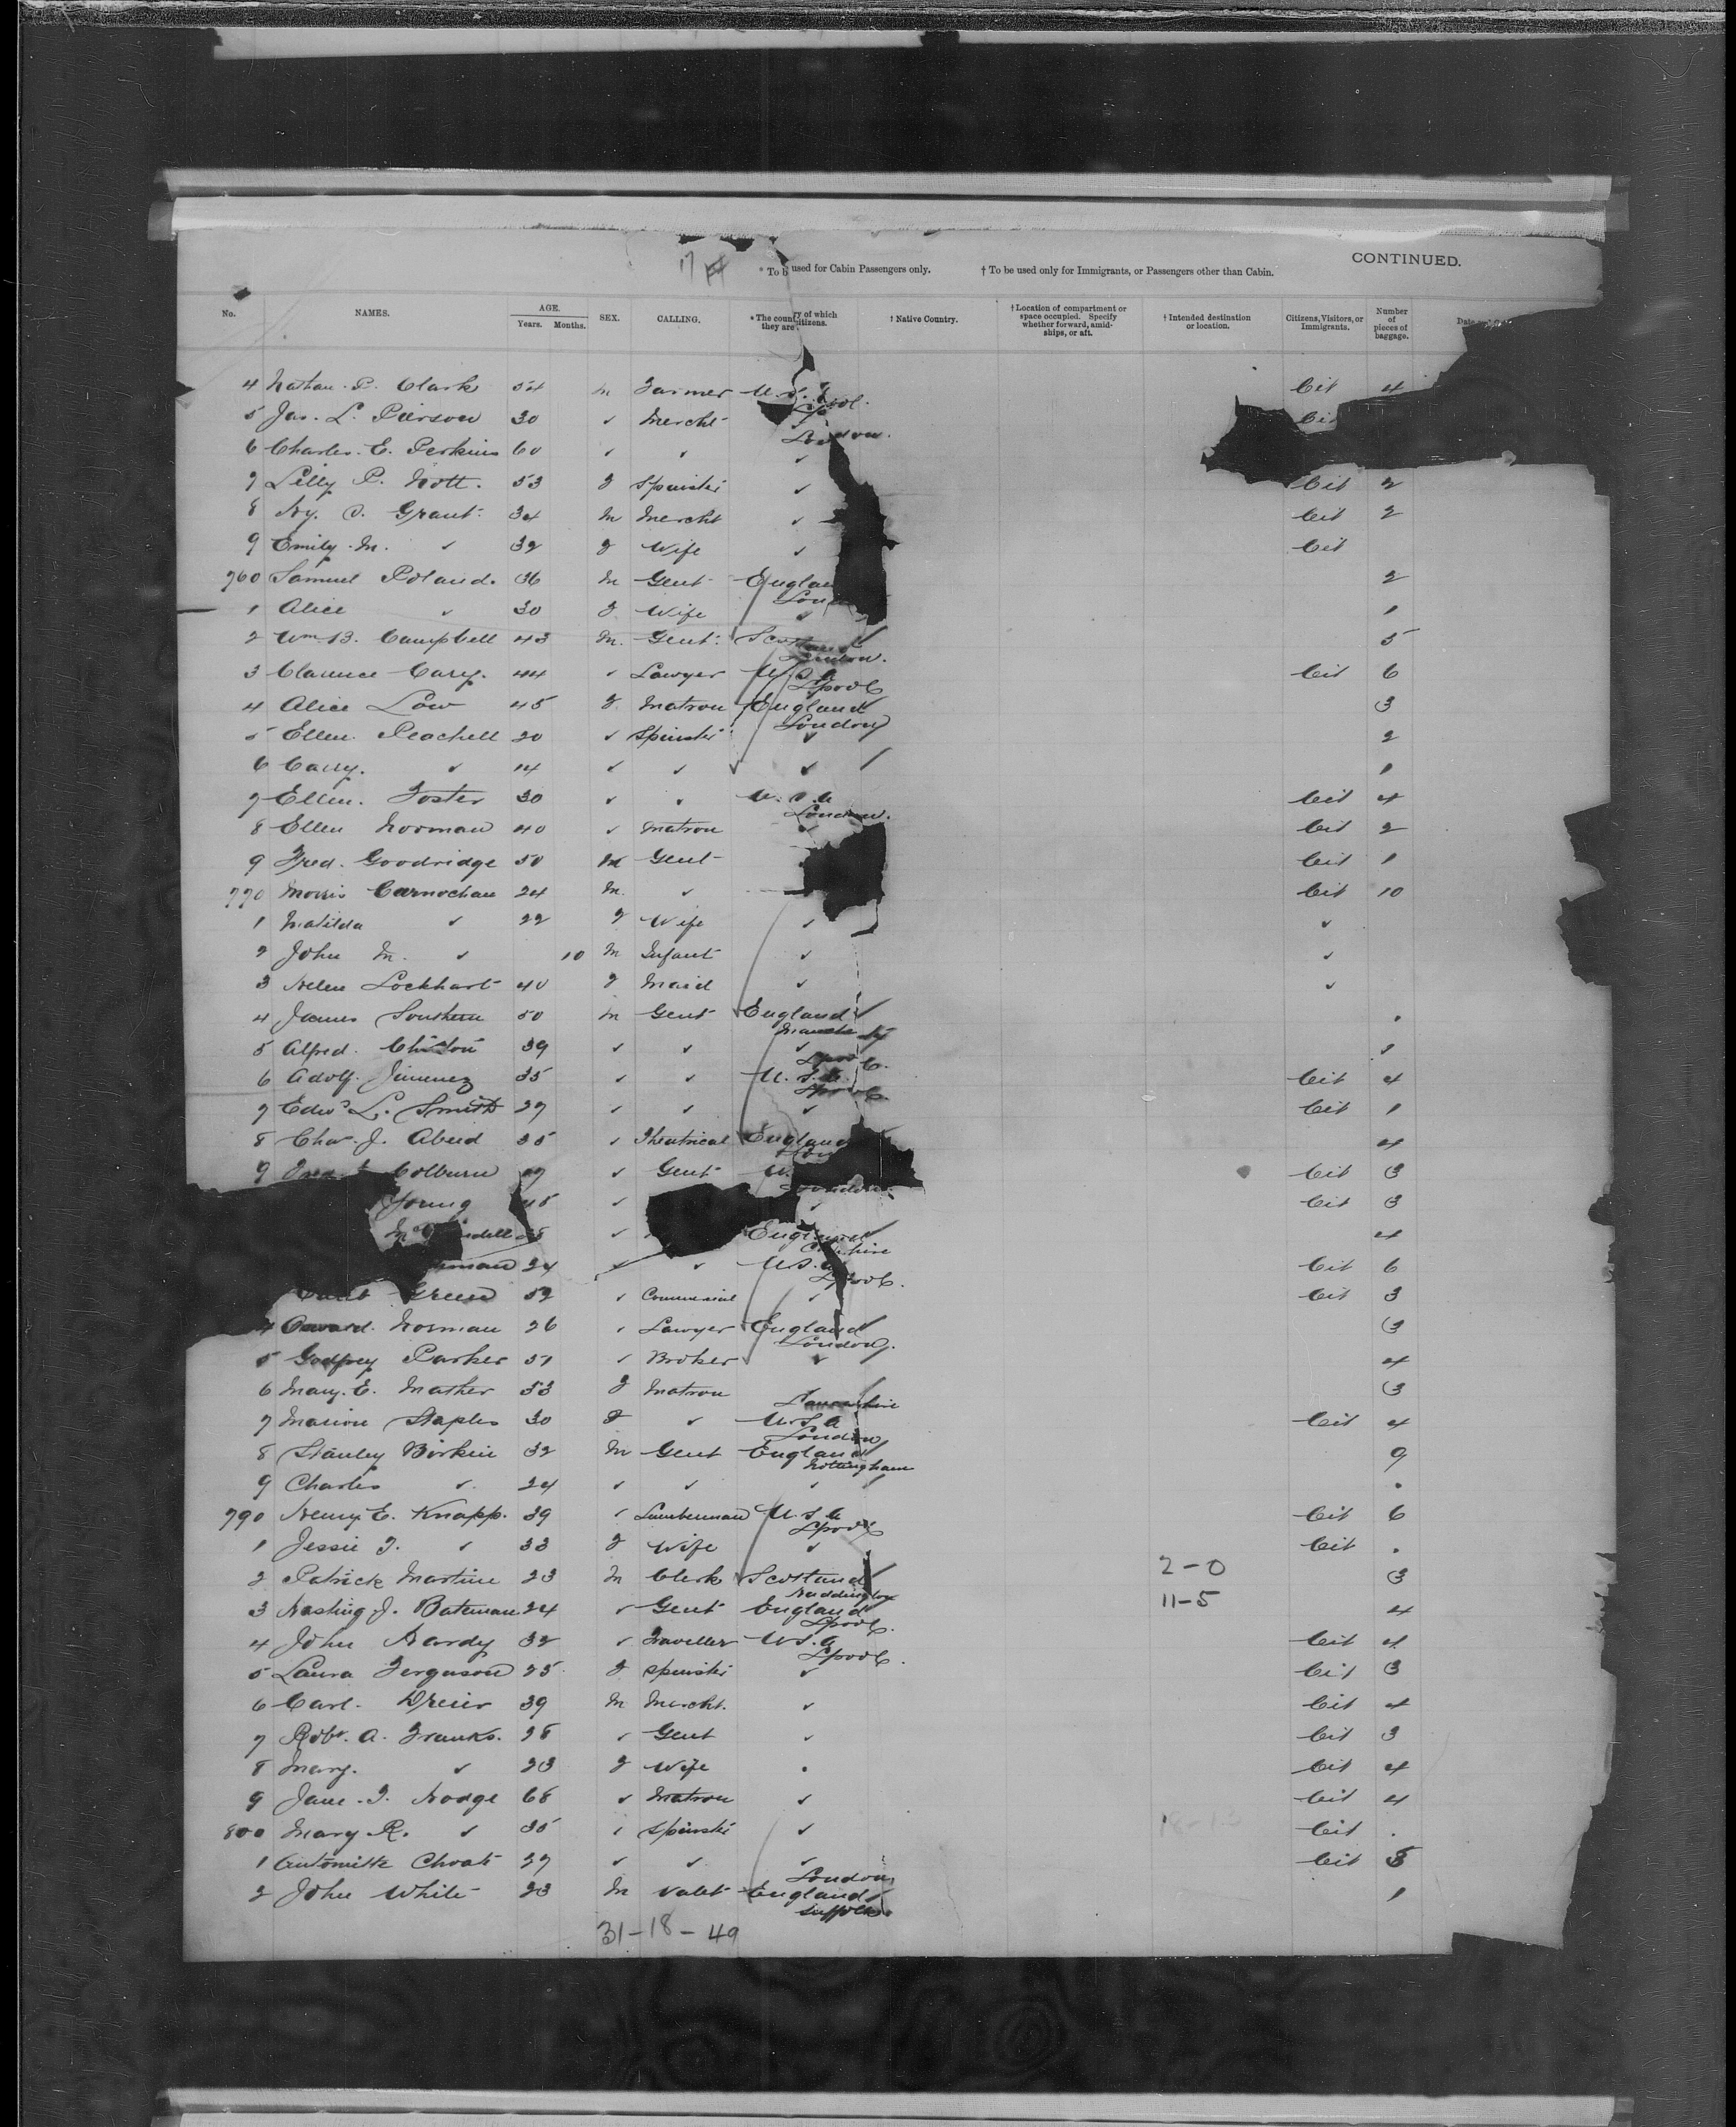 17
* To b used for Cabin Passengers only. † To be used only for Immigrants, or Passengers other than Cabin. CONTINUED.
No. NAMES. AGE. Years. Months. SEX. CALLING. * The country of which they are citizens. † Native Country. † Location of compartment or space occupied. Specify whether forward, amidships, or aft. † Intended destination or location. Citizens, Visitors, or Immigrants. Number of pieces of baggage.
4 Nathan P. Clark 54 M Farmer U.S. Cit 4
5 Jas. L. Pierson 30 ✓ Mercht London.
6 Charles E. Perkins 60 ✓ ✓ ✓
7 Lilly P. Nott. 53 F Spinster ✓ Cit 2
8 Hy. S. Grant. 34 M Mercht ✓ Cit 2
9 Emily M. ✓ 32 F Wife ✓ Cit
760 Samuel Poland. 36 M Gent Englan 2
1 Alice ✓ 30 F Wife ✓ 1
2 Wm B. Campbell 43 M. Gent. London. 5
3 Clarence Cary. 44 ✓ Lawyer U.S.A Lpool Cit 6
4 Alice Low 45 F Matron England London 3
5 Ellen Peachell 20 ✓ Spinster ✓ 2
6 Carry. ✓ 14 ✓ ✓ ✓ 1
7 Ellen. Foster 30 ✓ ✓ U.S.A London. Cit 4
8 Ellen Norman 40 ✓ Matron Cit 2
9 Fred. Goodridge 50 M Gent Cit 1
770 Morris Carnochan 24 M. ✓ Cit 10
1 Matilda ✓ 22 F Wife ✓ ✓
2 John M. ✓ 10 M Infant ✓ ✓
3 Helen Lockhart 40 F Maid ✓ ✓
4 James Southern 50 M Gent England .
5 Alfred. 39 ✓ ✓ ✓ Lpool. 1
6 Adolf. Jimenez 35 ✓ ✓ U.S.A. Lpool. Cit 4
7 Edwd L. Smith 27 ✓ ✓ ✓ Cit 1
8 Chas. J. Abud 35 ✓ Theatrical England 4
9 Colburn ✓ Gent U. London. Cit 3
Young 45 ✓ ✓ Cit 3
✓ England 4
24 ✓ ✓ U.S.A Lpool. Cit 6
Green 52 ✓ Commercial ✓ Cit 3
4 Norman 26 ✓ Lawyer England London. 3
5 Godfrey Parker 37 ✓ Broker ✓ 4
6 Mary. E. Mather 53 F Matron Lancashire 3
7 Marion Staples 30 F ✓ U.S.A London Cit 4
8 Stanley Birkin 32 M Gent England Nottingham 9
9 Charles ✓ 24 ✓ ✓ ✓ .
790 Henry E. Knapp. 39 ✓ Lumberman U.S.A Lpool Cit 6
1 Jessie F. ✓ 33 F Wife ✓ Cit .
2 Patrick Martine 23 M Clerk Scotland Haddington 2-0 3
3 Hasting J. Bateman 24 ✓ Gent England Lpool. 11-5 4
4 John Hardy 32 ✓ Traveller U.S.A Lpool. Cit 4
5 Laura Ferguson 25 F Spinster ✓ Cit 3
6 Carl. Dreier 39 M Mercht. ✓ Cit 4
7 Robt. A. Franks. 28 ✓ Gent ✓ Cit 3
8 Mary. ✓ 23 F Wife . Cit 4
9 Jane. F. Hodge 68 ✓ Matron ✓ Cit 4
800 Mary R. ✓ 35 ✓ Spinster ✓ Cit .
1 Choate 27 ✓ ✓ ✓ London Cit 5
2 John White 23 M Valet England Suffolk. 1
31-18-49